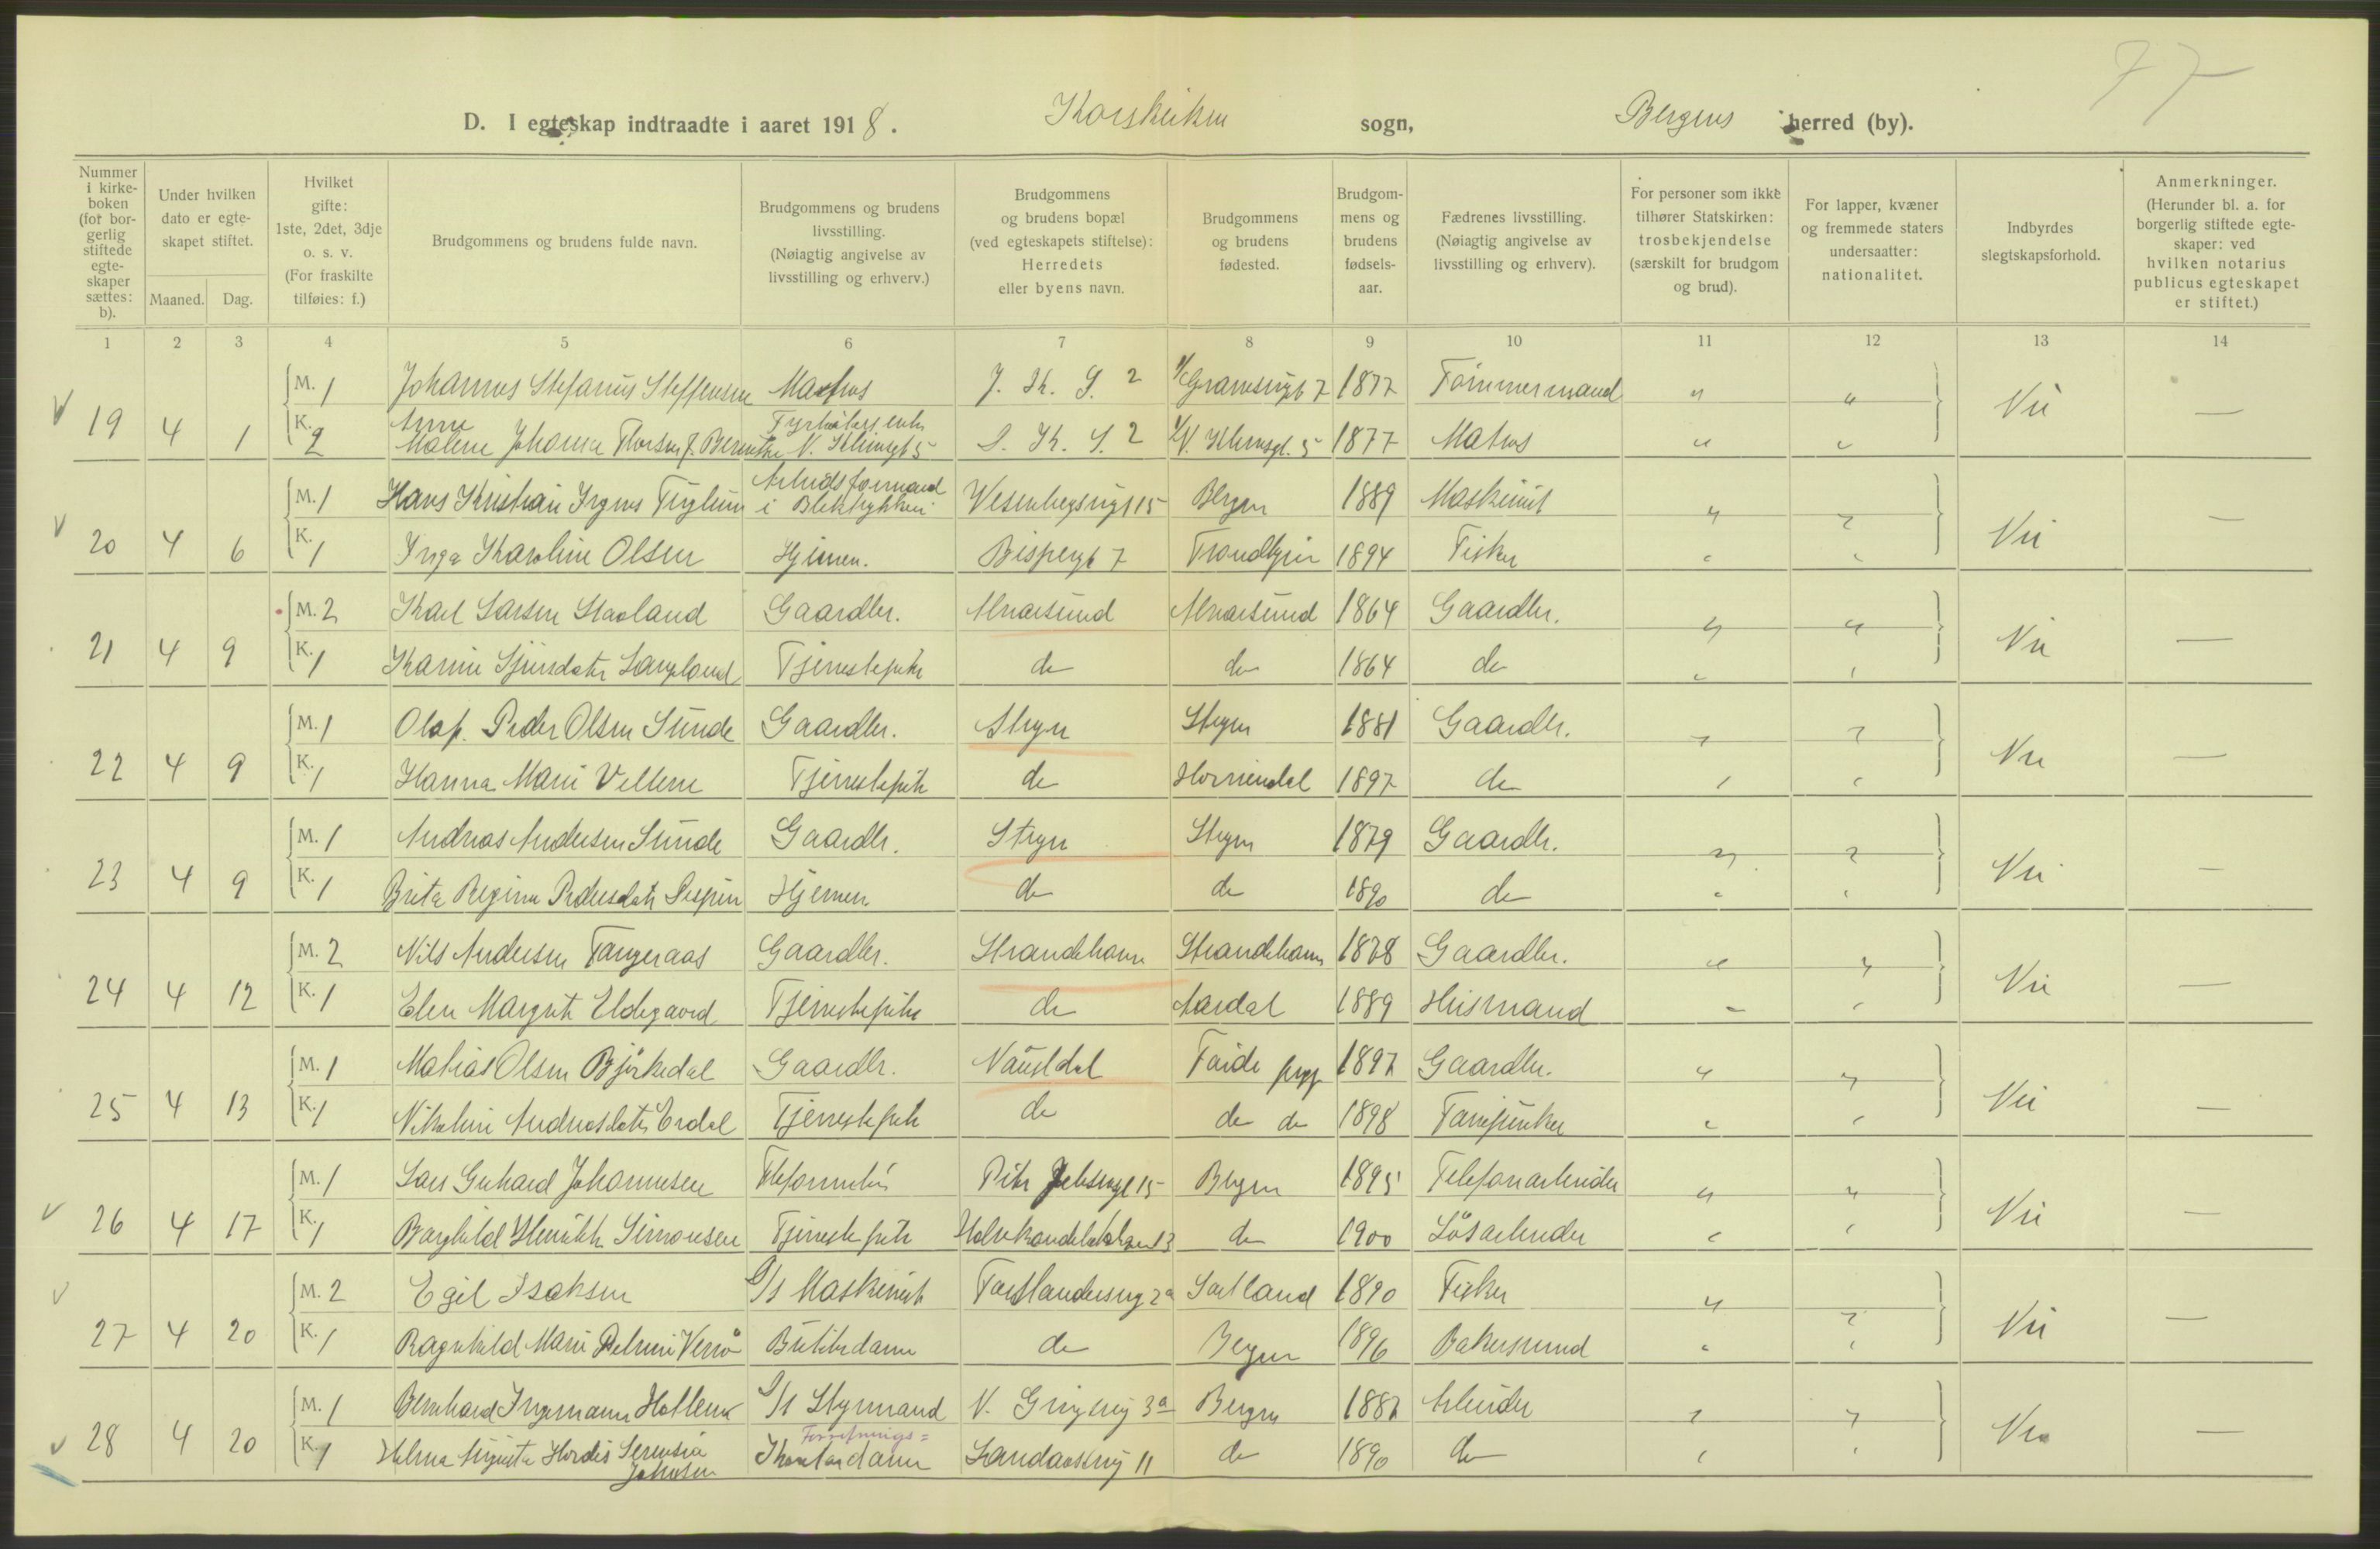 77
D. I egteskap indtraadte i aaret 1918. Korskirken sogn, Bergens herred (by).
Nummer i kirkeboken (for borgerlig stiftede egteskaper sættes: b).
Under hvilken dato er egteskapet stiftet.
Maaned. Dag.
Hvilket gifte: 1ste, 2det, 3dje o. s. v. (For fraskilte tilføies: f.)
Brudgommens og brudens fulde navn.
Brudgommens og brudens livsstilling. (Nøiagtig angivelse av livsstilling og erhverv.)
Brudgommens og brudens bopæl (ved egteskapets stiftelse): Herredets eller byens navn.
Brudgommens og brudens fødested.
Brudgommens og brudens fødselsaar.
Fædrenes livsstilling. (Nøiagtig angivelse av livsstilling og erhverv).
For personer som ikke tilhører Statskirken: trosbekjendelse (særskilt for brudgom og brud).
For lapper, kvæner og fremmede staters undersaatter: nationalitet.
Indbyrdes slegtskapsforhold.
Anmerkninger. (Herunder bl. a. for borgerlig stiftede egteskaper: ved hvilken notarius publicus egteskapet er stiftet.)
1 2 3 4 5 6 7 8 9 10 11 12 13 14
M. 1 Johannes Stefanus Steffensen Matros 1877 Tømmermand " "
19 4 1 K. 2 Anna Malene Johanna Thorsen 1877 Matros " " Nei —
M. 1 Hans Kristian Arbeidsformand i Bliktrykkeri 15 Bergen 1889 Maskinist " "
20 4 6 K. 1 Inga Karoline Olsen Hjemme. Bispengt 7 Trondhjem 1894 Fisker " " Nei —
M. 2 Karl Larsen Gaardbr. Alversund Alversund 1864 Gaardbr. " "
21 4 9 K. 1 Langeland Tjenestepike do do 1864 do " " Nei —
M. 1 Olaf Peder Olsen Sunde Gaardbr. Stryn Stryn 1881 Gaardbr. " "
22 4 9 K. 1 Hanna Marie Tjenestepike do Hornindal 1897 do " " Nei —
M. 1 Andreas Andersen Sunde Gaardbr. Stryn Stryn 1879 Gaardbr. " "
23 4 9 K. 1 Brita Regine Pedersdatr Hjemme do do 1890 do " " Nei —
M. 2 Nils Andersen Tangeraas Gaardbr. Strandebarm Strandebarm 1878 Gaardbr. " "
24 4 12 K. 1 Elen Margrete Eldegaard Tjenestepike do Aardal 1889 Husmand " " Nei —
M. 1 Matias Olsen Bjørkedal Gaardbr. Naustdal Førde prgj 1897 Gaardbr. " "
25 4 13 K. 1 Nikoline Andreasdatr Erdal Tjenestepike do do do 1898 " " Nei —
M. 1 Lars Gerhard Johannesen 15 Bergen 1895 Telefonarbeider " "
26 4 17 K. 1 Borghild Henrikke Simonsen Tjenestepike 13 do 1900 Løsarbeider " " Nei —
M. 2 Egil Isaksen D/s Maskinist 2a Sortland 1890 Fisker " "
27 4 20 K. 1 Ragnhild Marie Butikdame do Bergen 1896 Bakersvend " " Nei —
M. 1 Bernhard Ingemann D/s Styrmand 3a Bergen 1887 Arbeider " "
Forretnings=
28 4 20 K. 1 Helma Augusta Hordis Johnsen Kontordame Landaasvei 11 do 1890 do " " Nei —